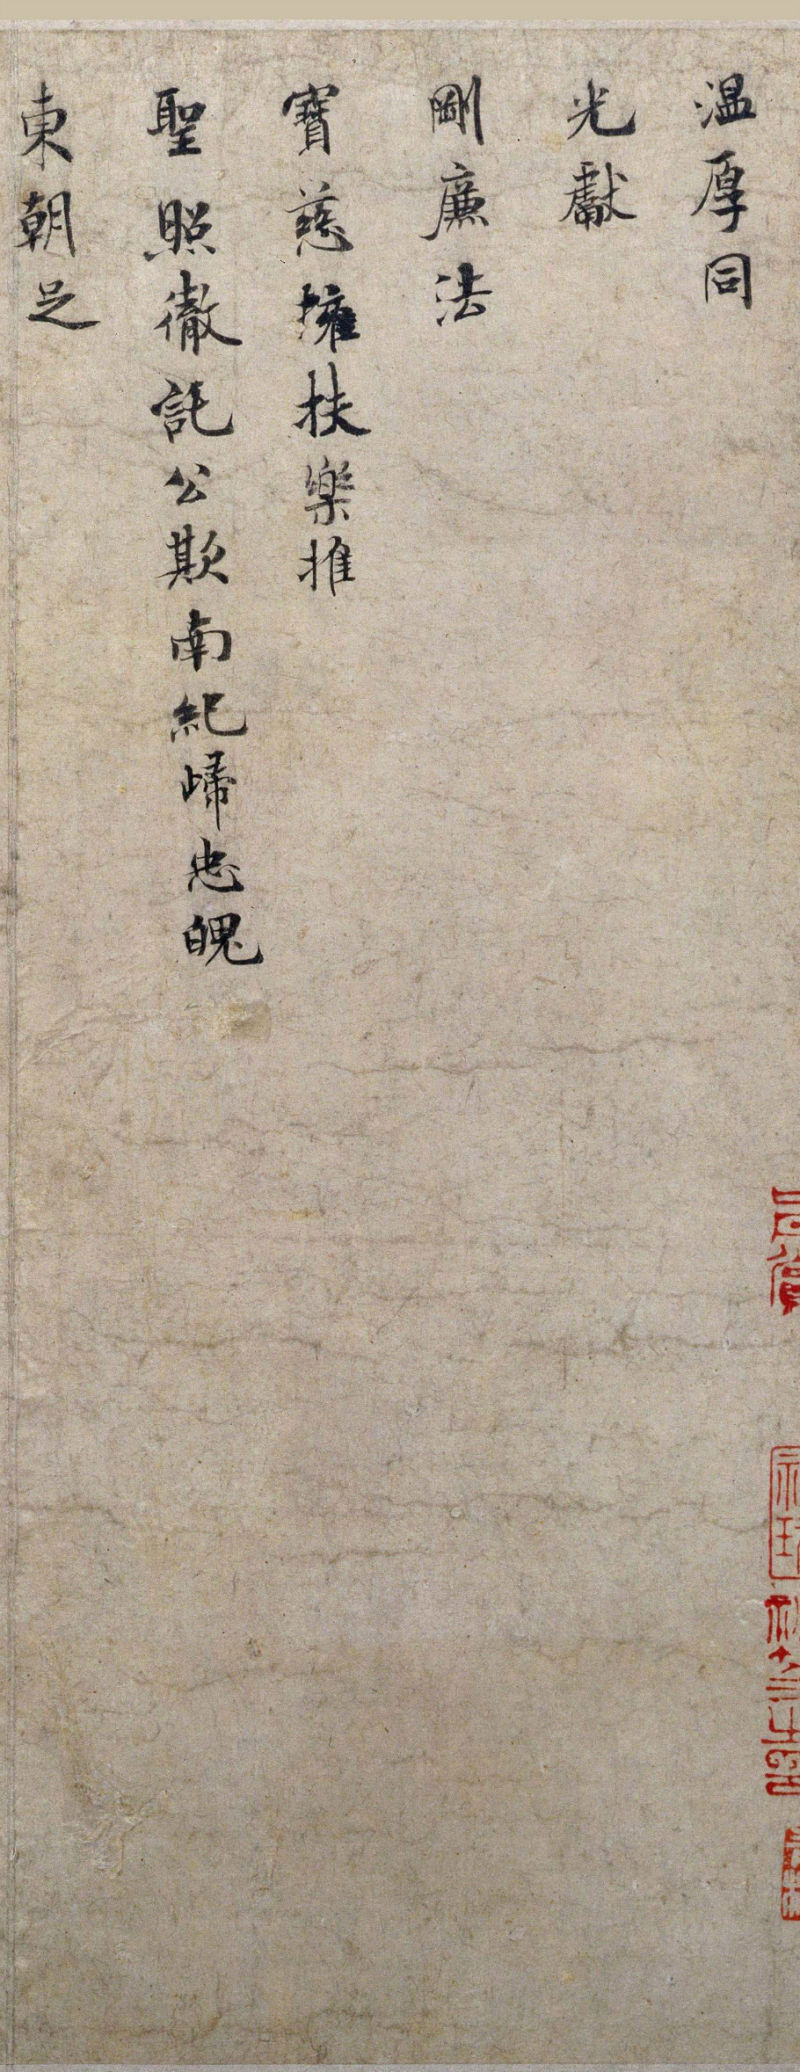 温厚同
光獻
剛廉法
寶慈擁扶樂推
聖照徹託公欺南紀歸忠魄
東朝足